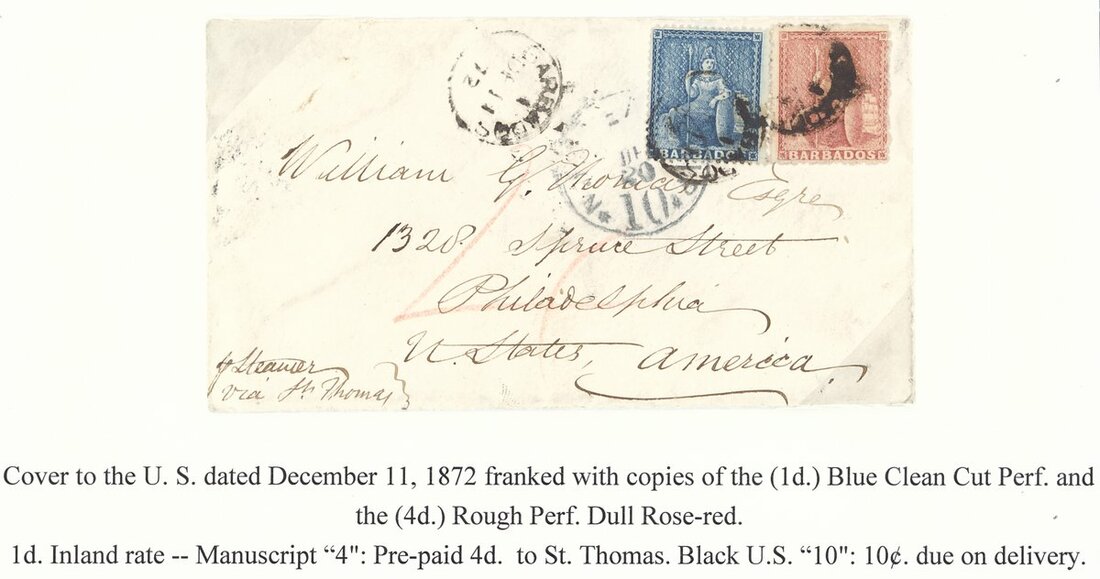 BARBADOS
DE 11
72
BARBADOS
BARBADOS
DE
20
10
William G. Thomas Esqre
1328 Spruce Street
Philadelphia
U States, America
4
pr Steamer
via St. Thomas
Cover to the U. S. dated December 11, 1872 franked with copies of the (1d.) Blue Clean Cut Perf. and
the (4d.) Rough Perf. Dull Rose-red.
1d. Inland rate -- Manuscript “4": Pre-paid 4d. to St. Thomas. Black U.S. “10": 10¢. due on delivery.